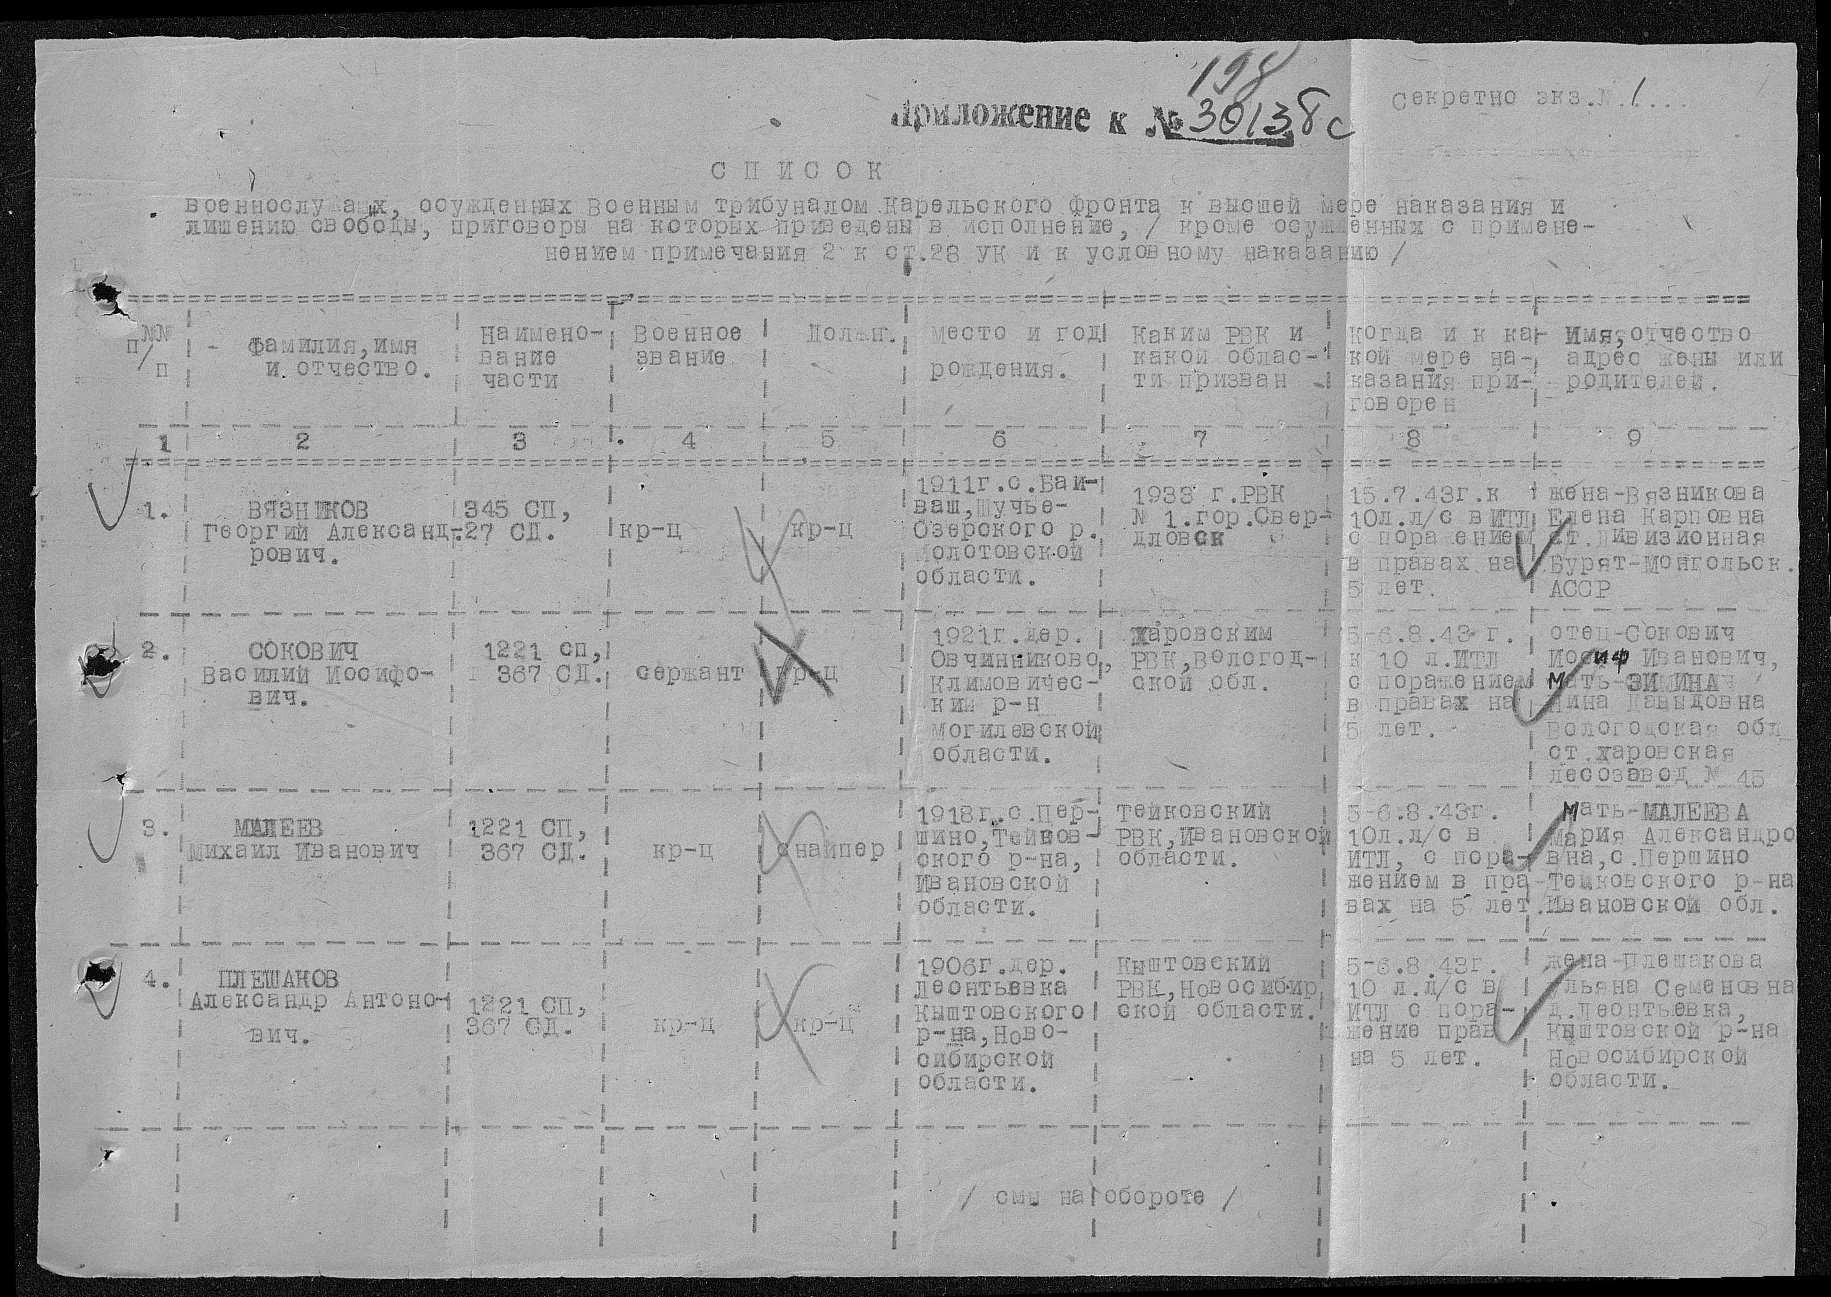 198
Приложение к № 30138с
Секретно экз.№.1...
СПИСОК
военнослужащих, осужденных Военным трибуналом Карельского фронта к высшей мере наказания и
лишению свободы, приговоры на которых приведены в исполнение, / кроме осужденных с примене-
нением примечания 2 к ст.28 УК и к условному наказанию /
№№
п/п
Фамилия,имя
и отчество.
Наимено-
вание
части
Военное
звание
Должн.
место и год
рождения.
Каким РВК и
какой облас-
ти призван
когда и к ка-
кой мере на-
казания при-
говорен
Имя,отчество
адрес жены или
родителей.
1 2 3 4 5 6 7 8 9
1.
ВЯЗНИКОВ
Георгий Александ-
рович.
345 СП,
27 СД.
кр-ц
кр-ц
1911г.с.Баи-
ваш,Щучье-
Озерского р.
Молотовской
области.
1933 г.РВК
№ 1.гор.Свер-
дловск
15.7.43г.к
10л.л/с в ИТЛ
с поражением
в правах на
5 лет.
жена-Вязникова
Елена Карповна
ст.Дивизионная
Бурят-Монгольск.
АССР
2.
СОКОВИЧ
Василий Иосифо-
вич.
1221 сп,
367 СД.
сержант
кр-ц
1921г.дер.
Овчинниково,
Климовичес-
кий р-н
Могилевской
области.
Харовским
РВК,Вологод-
ской обл.
5-6.8.43 г.
к 10 л.ИТЛ
с поражением
в правах на
5 лет.
отец-Сокович
Иосиф Иванович,
Мать-ЗИМИНА
Нина Давыдовна
Вологодская обл
ст.Харовская
лесозавод № 45
3.
МАЛЕЕВ
Михаил Иванович
1221 СП,
367 СД.
кр-ц
снайпер
1918г.с.Пер-
шино,Тейков-
ского р-на,
Ивановской
области.
Тейковский
РВК,Ивановской
области.
5-6.8.43г.
10л.л/с в
ИТЛ, с пора-
жением в пра-
вах на 5 лет.
Мать-МАЛЕЕВА
Мария Александро
вна,с.Першино
Тейковского р-на
Ивановской обл.
4.
ПЛЕШАКОВ
Александр Антоно-
вич.
1221 СП,
367 СД.
кр-ц
кр-ц
1906г.дер.
Леонтьевка
Кыштовского
р-на,Ново-
сибирской
области.
Кыштовский
РВК,Новосибир
ской области.
5-6.8.43г.
10 л.л/с в
ИТЛ с пора-
жение прав
на 5 лет.
жена-Плешакова
Ульяна Семеновна
д.Леонтьевка,
Кыштовской р-на
Новосибирской
области.
/ см. на обороте /